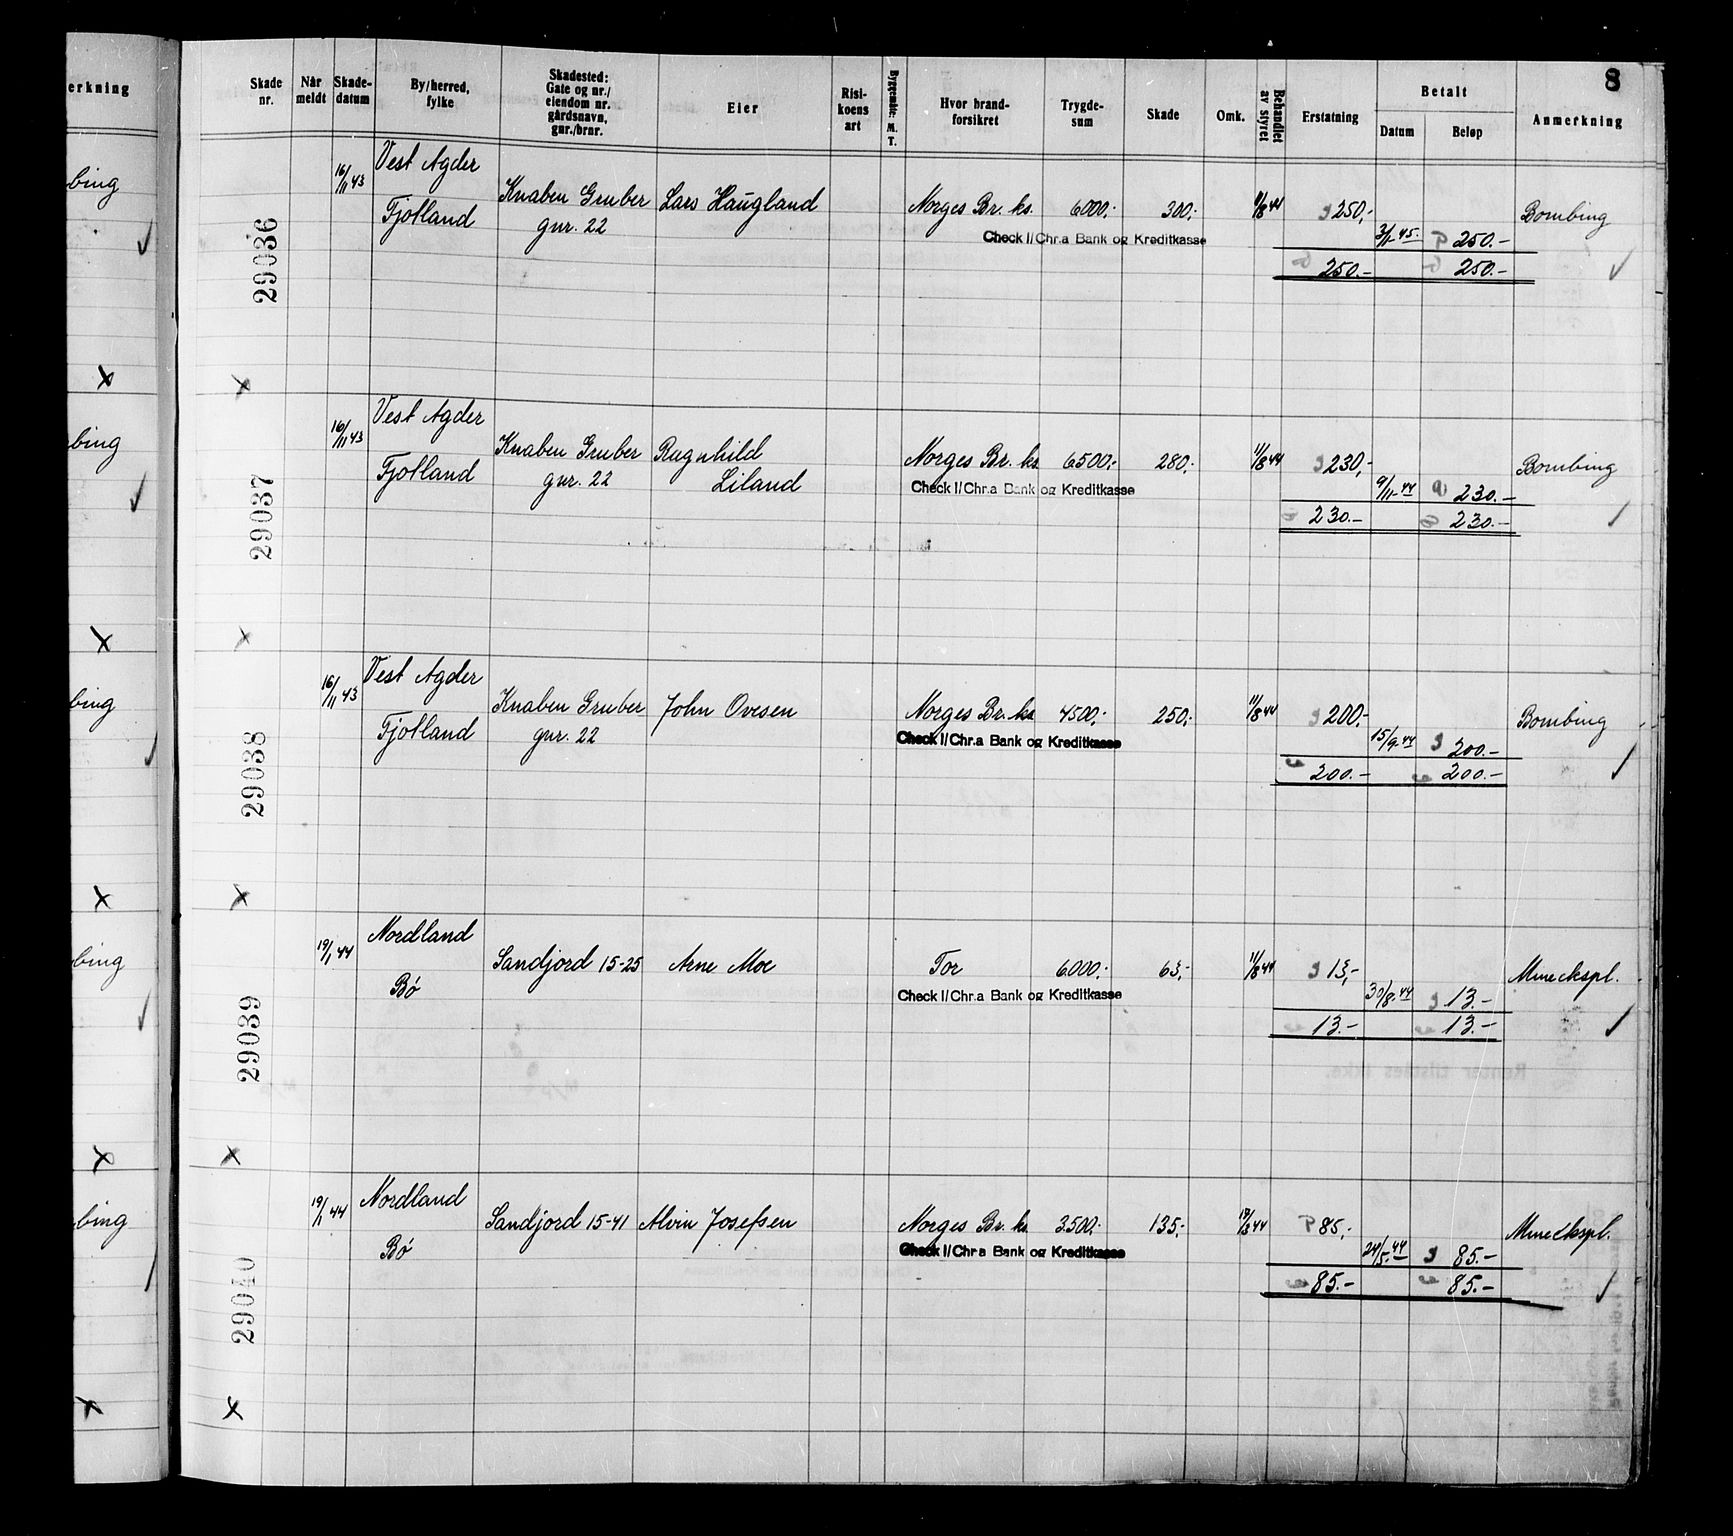 8
erkning
Skade nr. | Når meldt | Skade-datum | By/herred, fylke | Skadested: Gate og nr./ eiendom nr. gårdsnavn, gnr./brnr. | Eier | Risi-koens art | Byggemåte: M. T. | Hvor brand-forsikret | Trygde-sum | Skade | Omk. | Behandlet av styret | Erstatning | Betalt | Datum | Beløp | Anmerkning
bing
29036
16/11 43 Vest Agder
Fjotland Knaben Gruber Lars Haugland Norges Br. ks. 6000,- 300,- 11/8 44 250,- Bombing
gnr. 22
Check I/Chr.a Bank og Kreditkasse 3/1-45. 250.-
250.- 250.-
bing
29037
16/11 43 Vest Agder
Fjotland Knaben Gruber Ragnhild Norges Br. ks 6500,- 280,- 11/8 44 230,- Bombing
gnr. 22 Liland
Check I/Chr.a Bank og Kreditkasse 9/11-44 230.-
230.- 230.-
bing
29038
16/11 43 Vest Agder
Fjotland Knaben Gruber John Ovesen Norges Br. ks 4500,- 250,- 11/8 44 200,- Bombing
gnr. 22
Check I/Chr.a Bank og Kreditkasse 15/9-44 200.-
200.- 200.-
bing
29039
19/1 44 Nordland
Sandjord 15-25 Arne Moe Tor 6000,- 63,- 11/8 44 13,- Mineekspl.
Bø
Check I/Chr.a Bank og Kreditkasse 30/8-44 13.-
13.- 13.-
Renter tilståes ikke.
bing
29040
19/1 44 Nordland
Sandjord 15-41 Alvin Josefsen Norges Br. ks 3500,- 135,- 44 85,- Mineekspl.
Bø
Check I/Chr.a Bank og Kreditkasse 24/5-44 85.-
85.- 85.-